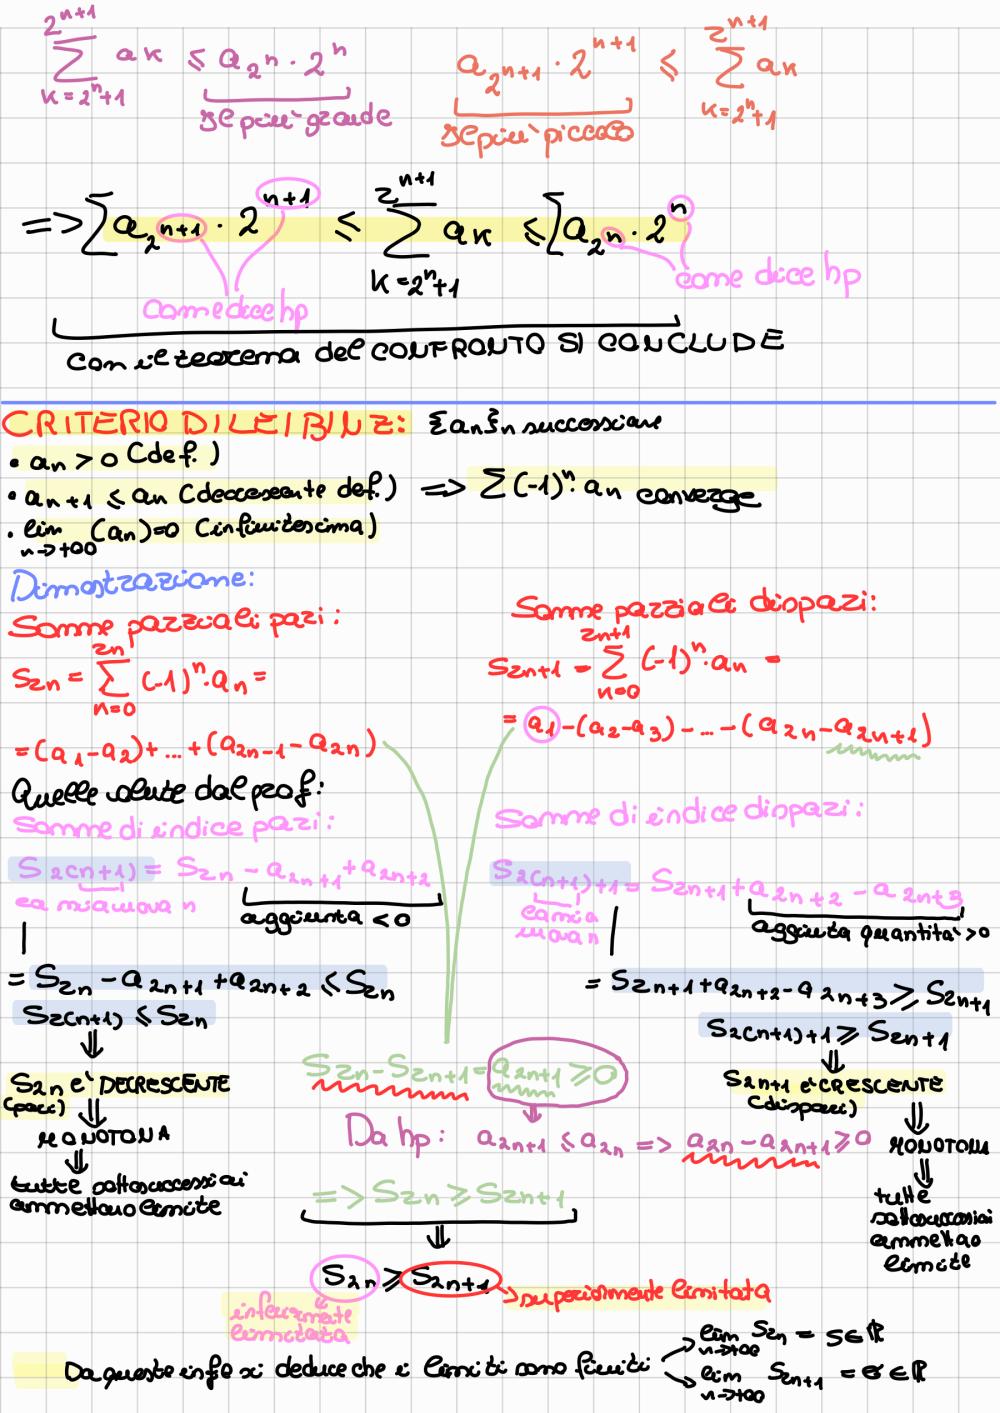 2^{n+1} ∑_{k=2^n+1} a_k ≤ a_{2^n} · 2^n
se più grande
a_{2^{n+1}} · 2^{n+1} ≤ ∑_{k=2^n+1}^{2^{n+1}} a_k
se più piccolo
=> ∑ a_{2^{n+1}} · 2^{n+1} ≤ ∑_{k=2^n+1}^{2^{n+1}} a_k ≤ ∑ a_{2^n} · 2^n
come dice hp
come dice hp
con il teorema del CONFRONTO SI CONCLUDE
CRITERIO DI LEIBINZ: {an}n successione
• an > 0 (def.)
• an+1 ≤ an (decrescente def.) => ∑ (-1)^n · an converge
• lim_{n→+∞} (an)=0 (infinitesima)
Dimostrazione:
Somme parziali pari:
S_{2n} = ∑_{n=0}^{2n} (-1)^n · a_n =
= (a_1 - a_2) + ... + (a_{2n-1} - a_{2n})
Somme parziali dispari:
S_{2n+1} = ∑_{n=0}^{2n+1} (-1)^n · a_n =
= a_1 - (a_2 - a_3) - ... - (a_{2n} - a_{2n+1})
Quelle volute dal prof:
Somme di indice pari:
S_{2(n+1)} = S_{2n} - a_{2n+1} + a_{2n+2}
la mia nuova n
aggiunta < 0
= S_{2n} - a_{2n+1} + a_{2n+2} ≤ S_{2n}
S_{2(n+1)} ≤ S_{2n}
⇓
S_{2n} e' DECRESCENTE
(pari)
⇓
MONOTONA
⇓
tutte sottosuccessioni
ammettono limite
Somme di indice dispari:
S_{2(n+1)+1} = S_{2n+1} + a_{2n+2} - a_{2n+3}
la mia
nuova n
aggiunta quantita' > 0
= S_{2n+1} + a_{2n+2} - a_{2n+3} ≥ S_{2n+1}
S_{2(n+1)+1} ≥ S_{2n+1}
⇓
S_{2n+1} e' CRESCENTE
(dispari)
⇓
MONOTONA
⇓
tutte
sottosuccessioni
ammettono
limite
S_{2n} - S_{2n+1} = a_{2n+1} ≥ 0
⇓
Da hp: a_{2n+1} ≤ a_{2n} => a_{2n} - a_{2n+1} ≥ 0
=> S_{2n} ≥ S_{2n+1}
⇓
S_{2n} ≥ S_{2n+1} → superiormente limitata
inferiormente
limitata
Da queste info si deduce che i limiti sono finiti
lim_{n→+∞} S_{2n} = s ∈ ℝ
lim_{n→+∞} S_{2n+1} = σ ∈ ℝ